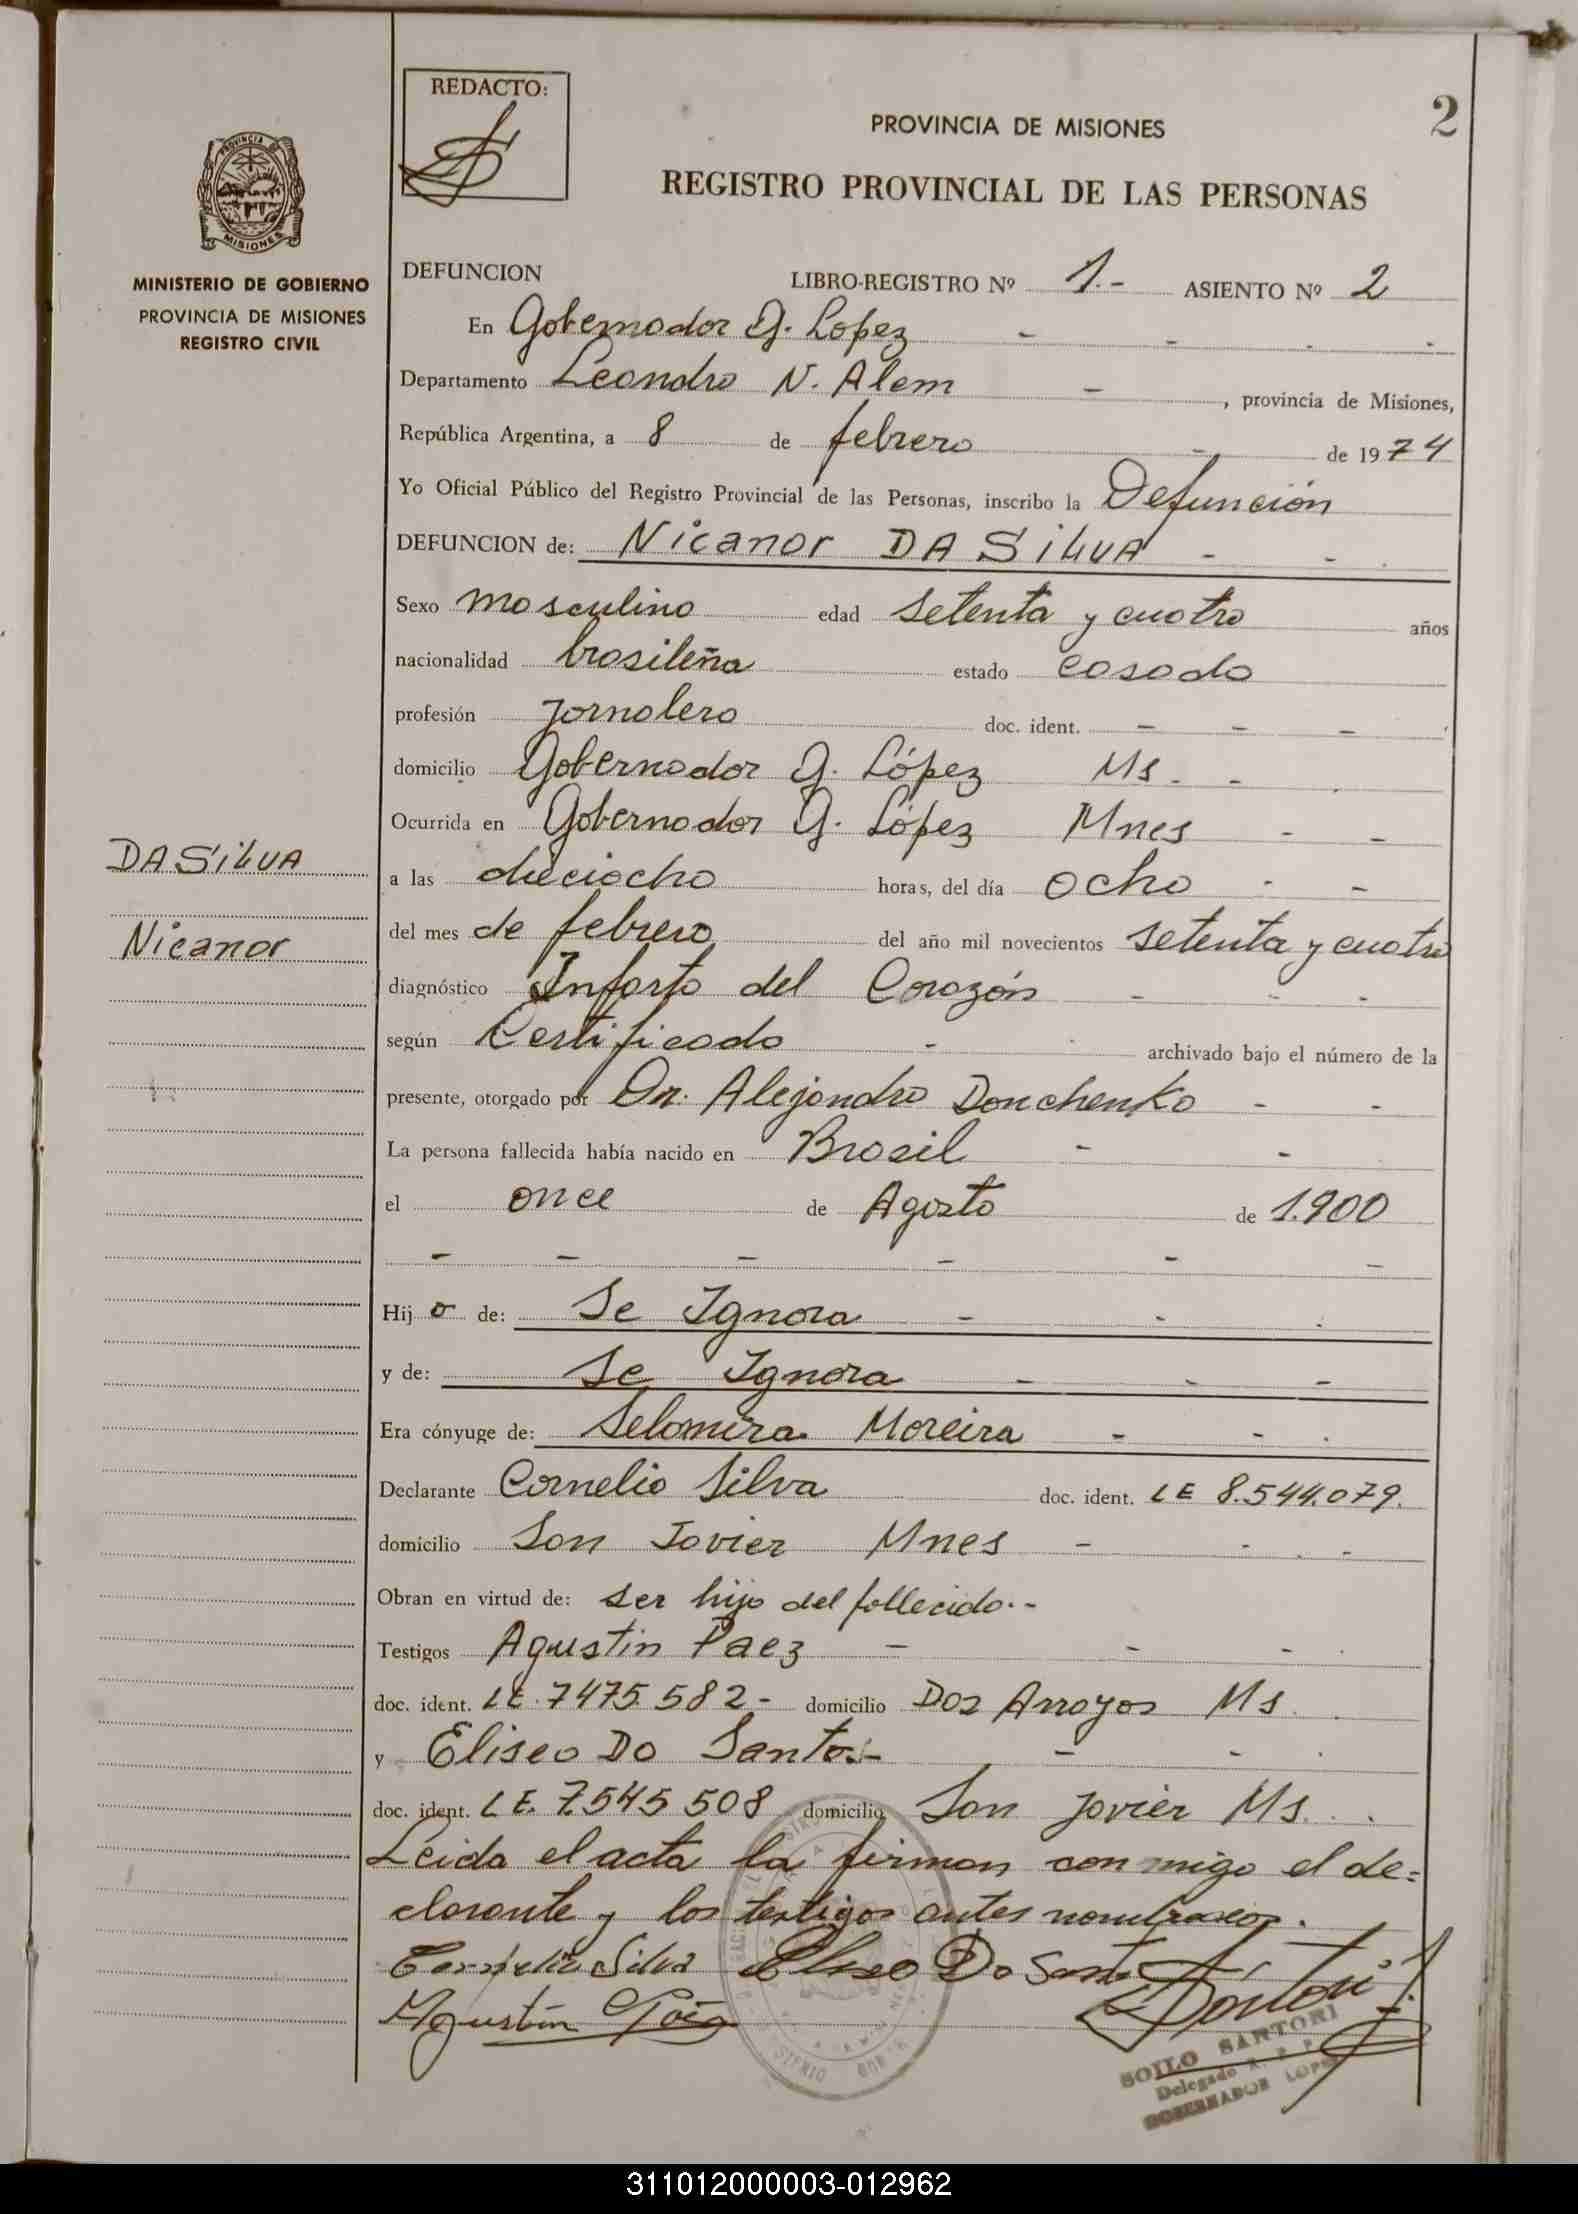 REDACTO:
2
PROVINCIA DE MISIONES
REGISTRO PROVINCIAL DE LAS PERSONAS
PROVINCIA DE
MISIONES
MINISTERIO DE GOBIERNO
PROVINCIA DE MISIONES
REGISTRO CIVIL
DEFUNCION LIBRO-REGISTRO Nº 1.- ASIENTO Nº 2
En Gobernador G. Lopez - - - -
Departamento Leandro N. Alem - , provincia de Misiones,
República Argentina, a 8 de febrero - de 1974
Yo Oficial Público del Registro Provincial de las Personas, inscribo la Defunción
DEFUNCION de: Nicanor DA SiLVA - - .
Sexo masculino edad setenta y cuatro años
nacionalidad brasileña estado casado
profesión Jornalero doc. ident. - - - .
domicilio Gobernador G. López Ms. - .
Ocurrida en Gobernador G. López Mnes - -
a las dieciocho horas, del día ocho - -
del mes de febrero del año mil novecientos setenta y cuatro
diagnóstico Infarto del Corazón - - -
según Certificado - archivado bajo el número de la
presente, otorgado por Dr. Alejandro Donchenko - -
La persona fallecida había nacido en Brasil - -
el once de Agosto de 1.900
- - - - - -
Hijo de: Se Ignora - - .
y de: Se Ignora - - -
Era cónyuge de: Selomira Moreira - - .
Declarante Cornelio Silva doc. ident. LE 8.544.079.
domicilio San Javier Mnes - - . -
Obran en virtud de: ser hijo del fallecido.-
Testigos Agustin Paez - - - .
doc. ident. LE. 7475.582- domicilio Dos Arroyos Ms . .
y Eliseo Do Santos- - - .
doc. ident. LE. 7.545 508 domicilio San Javier Ms. . .
Leida el acta la firman conmigo el de=
clarante y los testigos antes nombrados.
Cornelio Silva Eliseo Do Santo
Agustin Páez
SOILO SARTORI
Delegado R. P. P.
GOBERNADOR LOPEZ
DA SiLVA
Nicanor
311012000003-012962